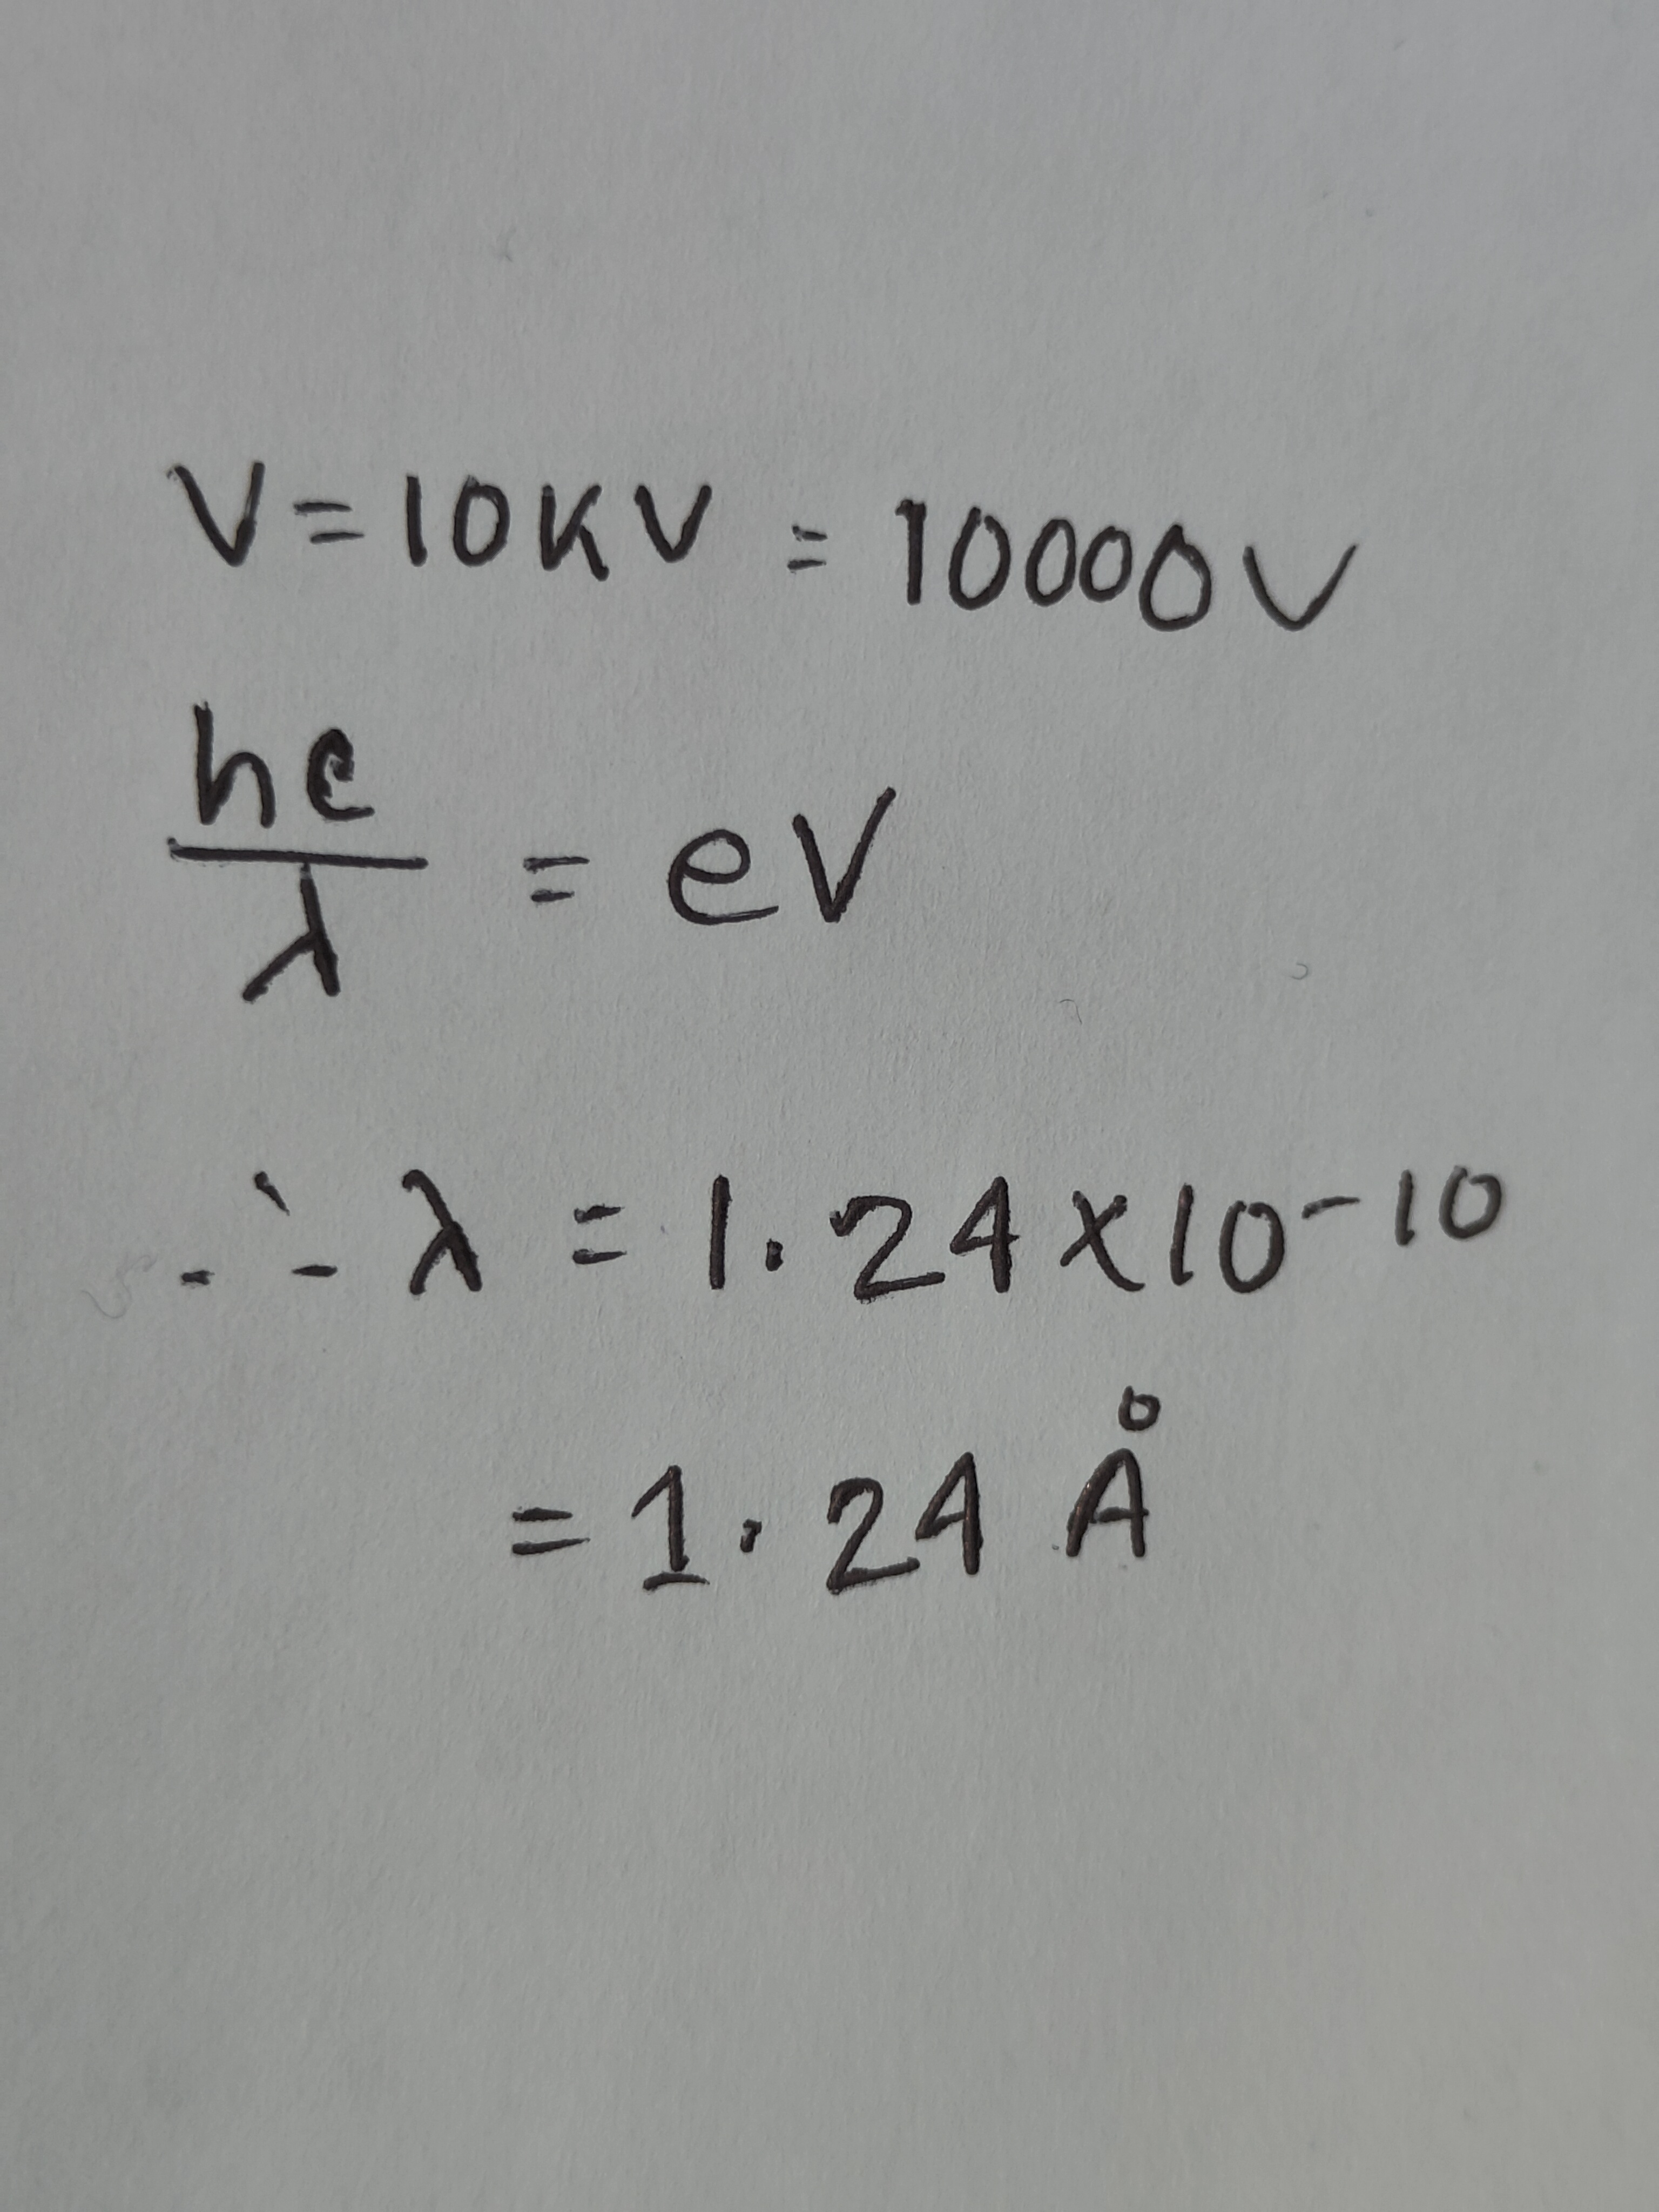 V = 10KV = 10000V
hc/λ = eV
∴ λ = 1.24 × 10⁻¹⁰
= 1.24 Å